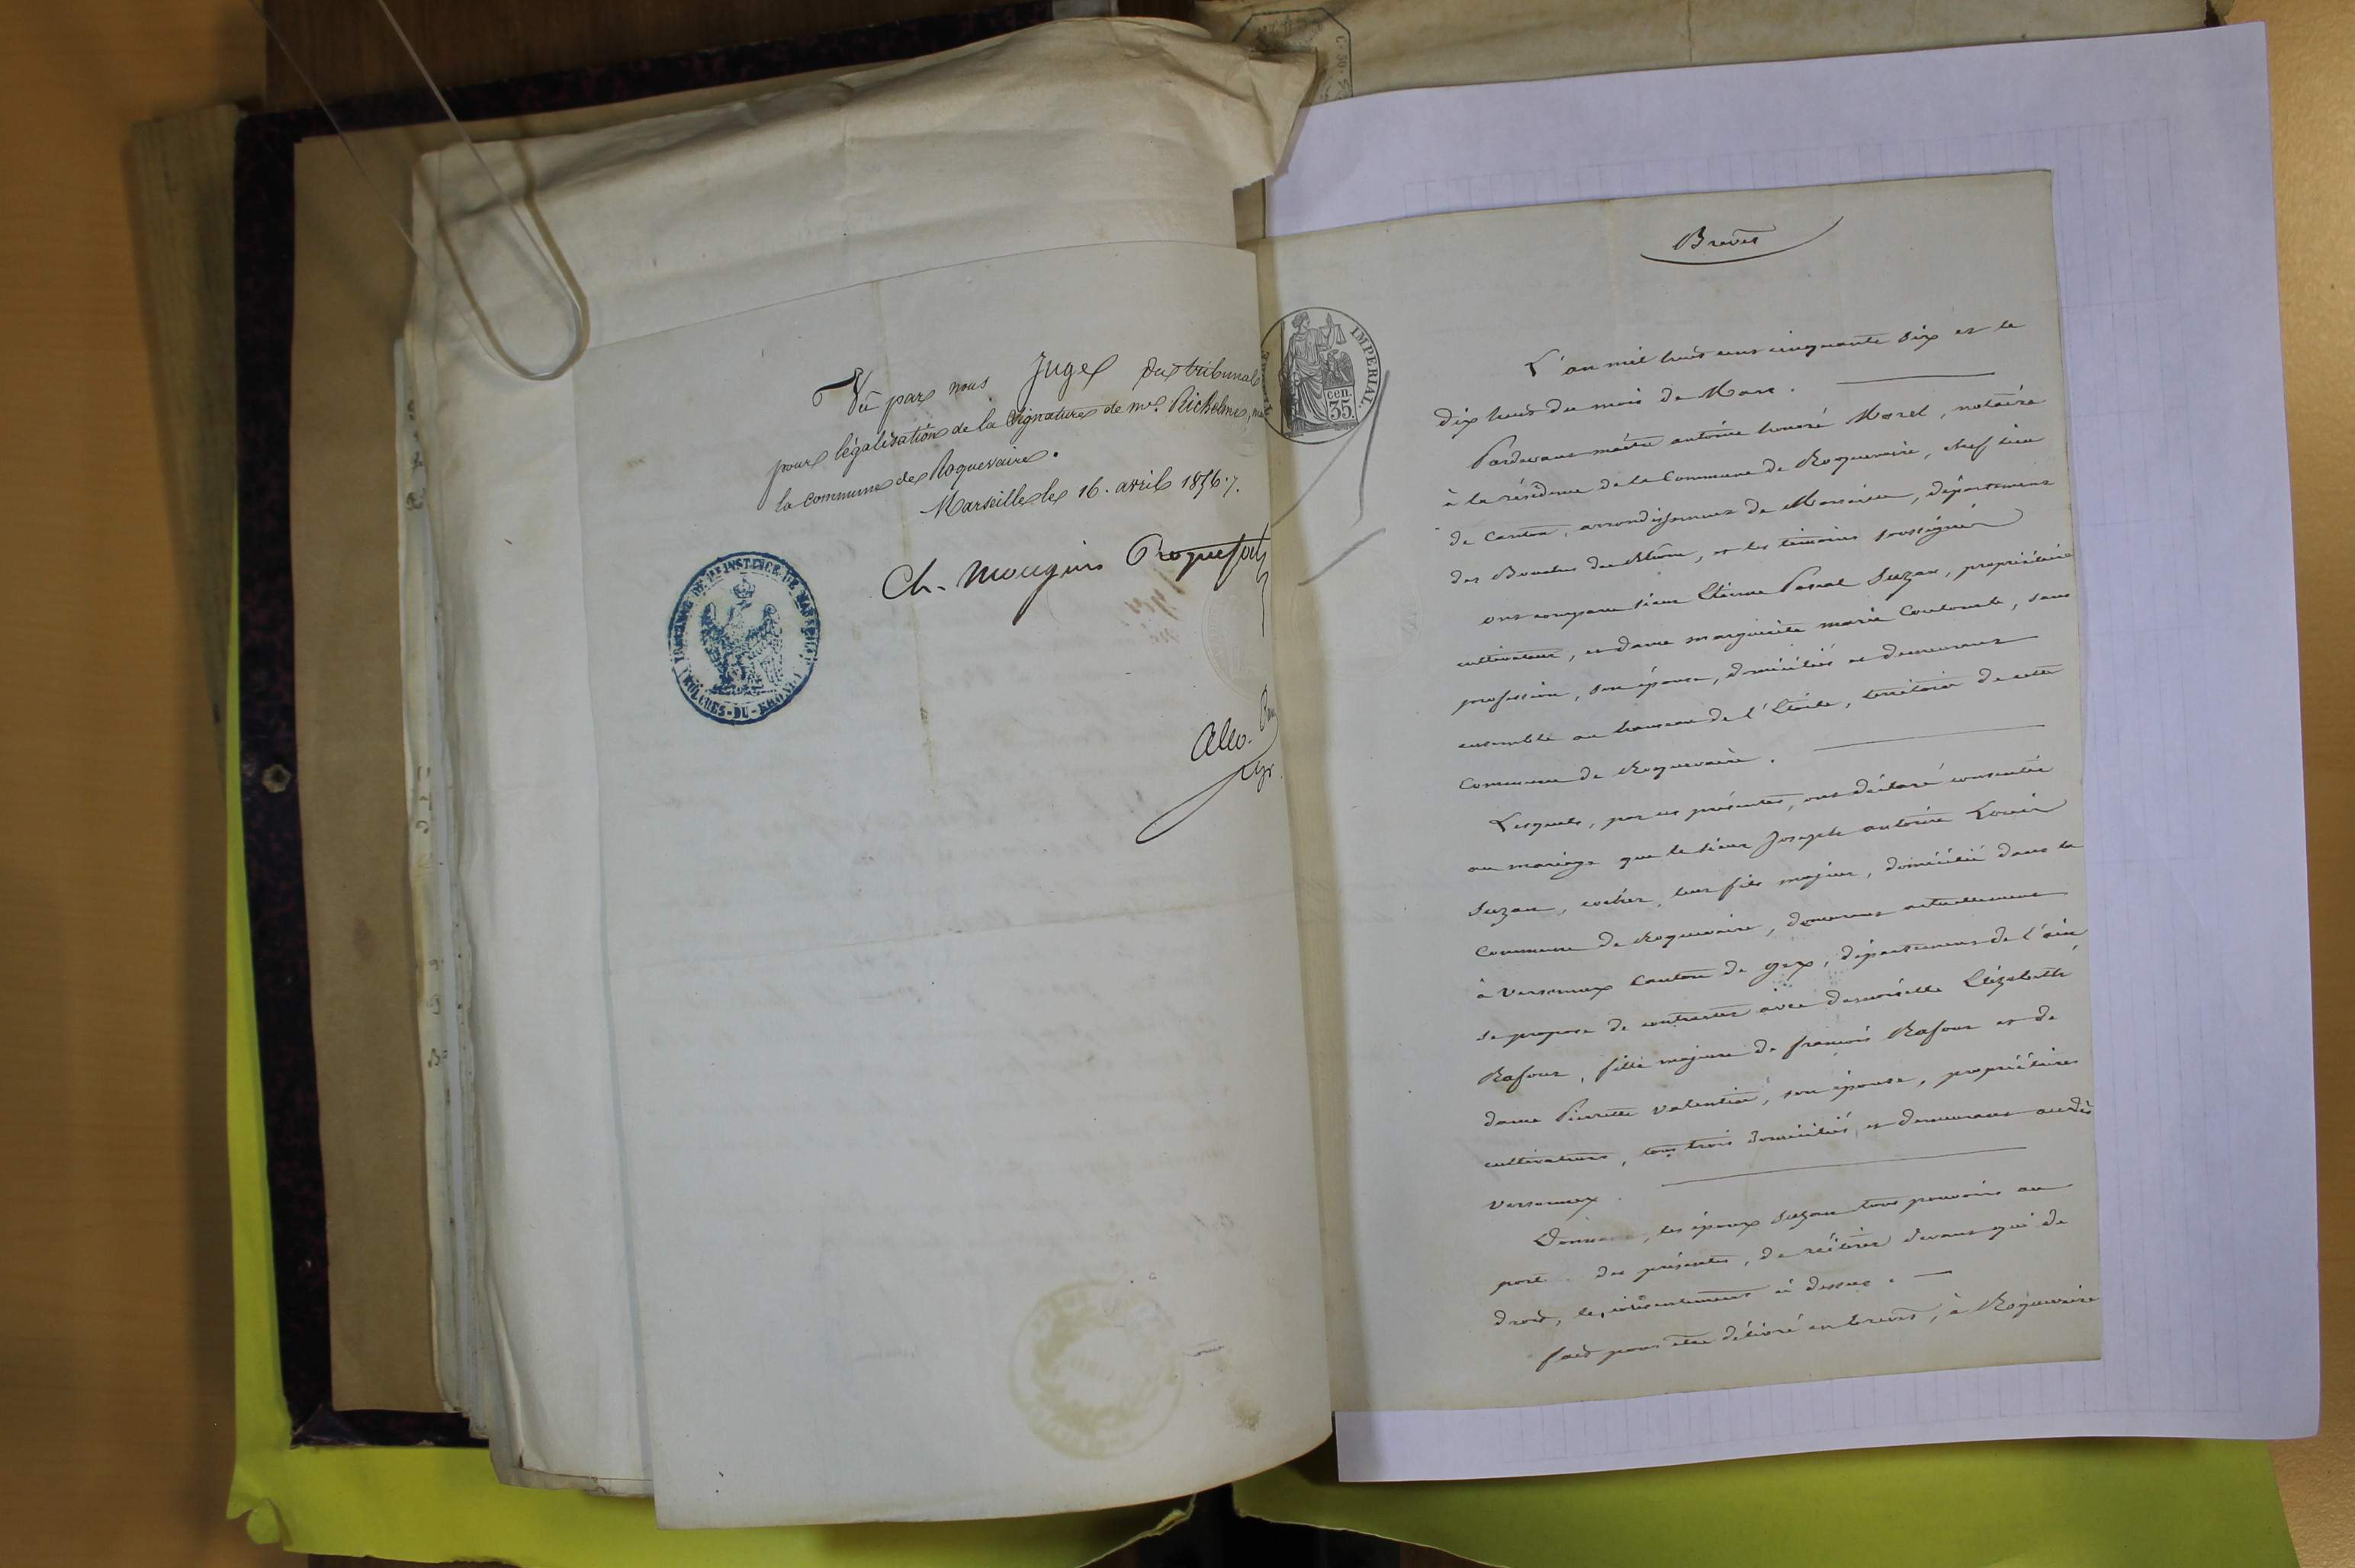 Vu par nous Juge du tribunal
pour légalisation de la signature de mr. Richelme,
la commune de Roquevaire.
Marseille le 16. avril 1856.
Ch. Mougins Roquefort
TRIBUNAL DE 1re INSTANCE DE MARSEILLE
BOUCHES-DU-RHONE
IMPERIAL.
35 cen.
Brevet
L'an mil huit cent cinquante six et le
dix huit du mois de Mars.
Pardevant maître antoine honoré Morel, notaire
à la résidence de la Commune de Roquevaire, chef lieu
de Canton, arrondissement de Marseille, département
des Bouches du Rhône, et les témoins soussignés
ont comparu sieur Etienne Pascal Suzan, propriétaire
cultivateur, et dame marguerite marie Coulomb, sans
profession, son épouse, domiciliés et demeurant
ensemble au hameau de l'Etoile, territoire de cette
Commune de Roquevaire.
Lesquels, par ces présentes, ont déclaré consentir
au mariage que le sieur Joseph antoine Louis
Suzan, cocher, leur fils majeur, domicilié dans la
Commune de Roquevaire, demeurant actuellement
à Versonnex Canton de gex, département de l'ain
se propose de contracter avec demoiselle Elizabeth
Rafour, fille majeure de françois Rafour et de
dame Pierrette valentin, son épouse, propriétaires
cultivateurs, tous trois domiciliés et demeurant audit
Versonnex.
Donnent, les époux Suzan tous pouvoirs au
port des présentes, de réitérer devant qui de
droit, le consentement ci dessus.
fait pour être délivré en brevet, à Roquevaire